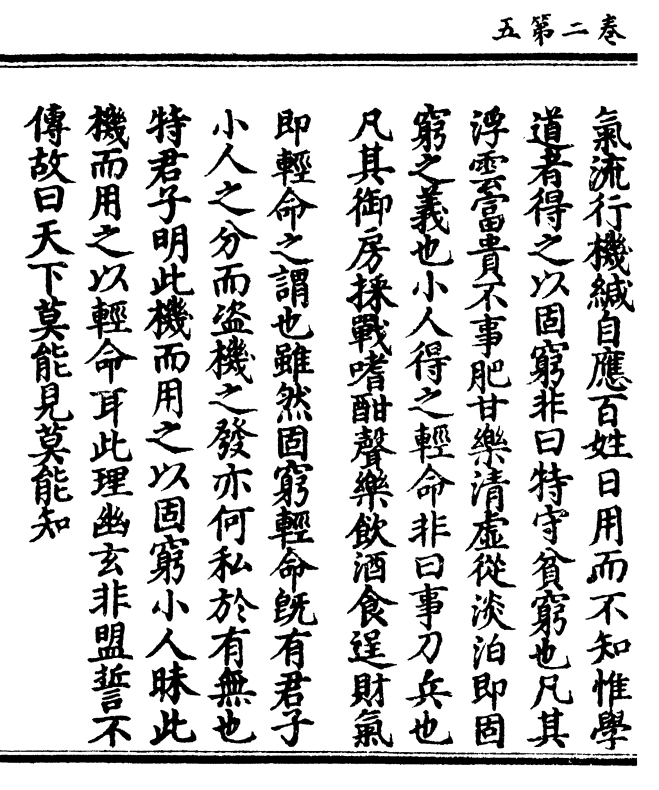 卷二第五
氣流行機緘自應百姓日用而不知惟學
道者得之以固窮非曰特守貧窮也凡其
浮雲富貴不事肥甘樂清虛從淡泊即固
窮之義也小人得之輕命非曰事刀兵也
凡其御房採戰嗜酣聲樂飲酒食逞財氣
即輕命之謂也雖然固窮輕命旣有君子
小人之分而盗機之發亦何私於有無也
特君子明此機而用之以固窮小人昧此
機而用之以輕命耳此理幽玄非盟誓不
傳故曰天下莫能見莫能知